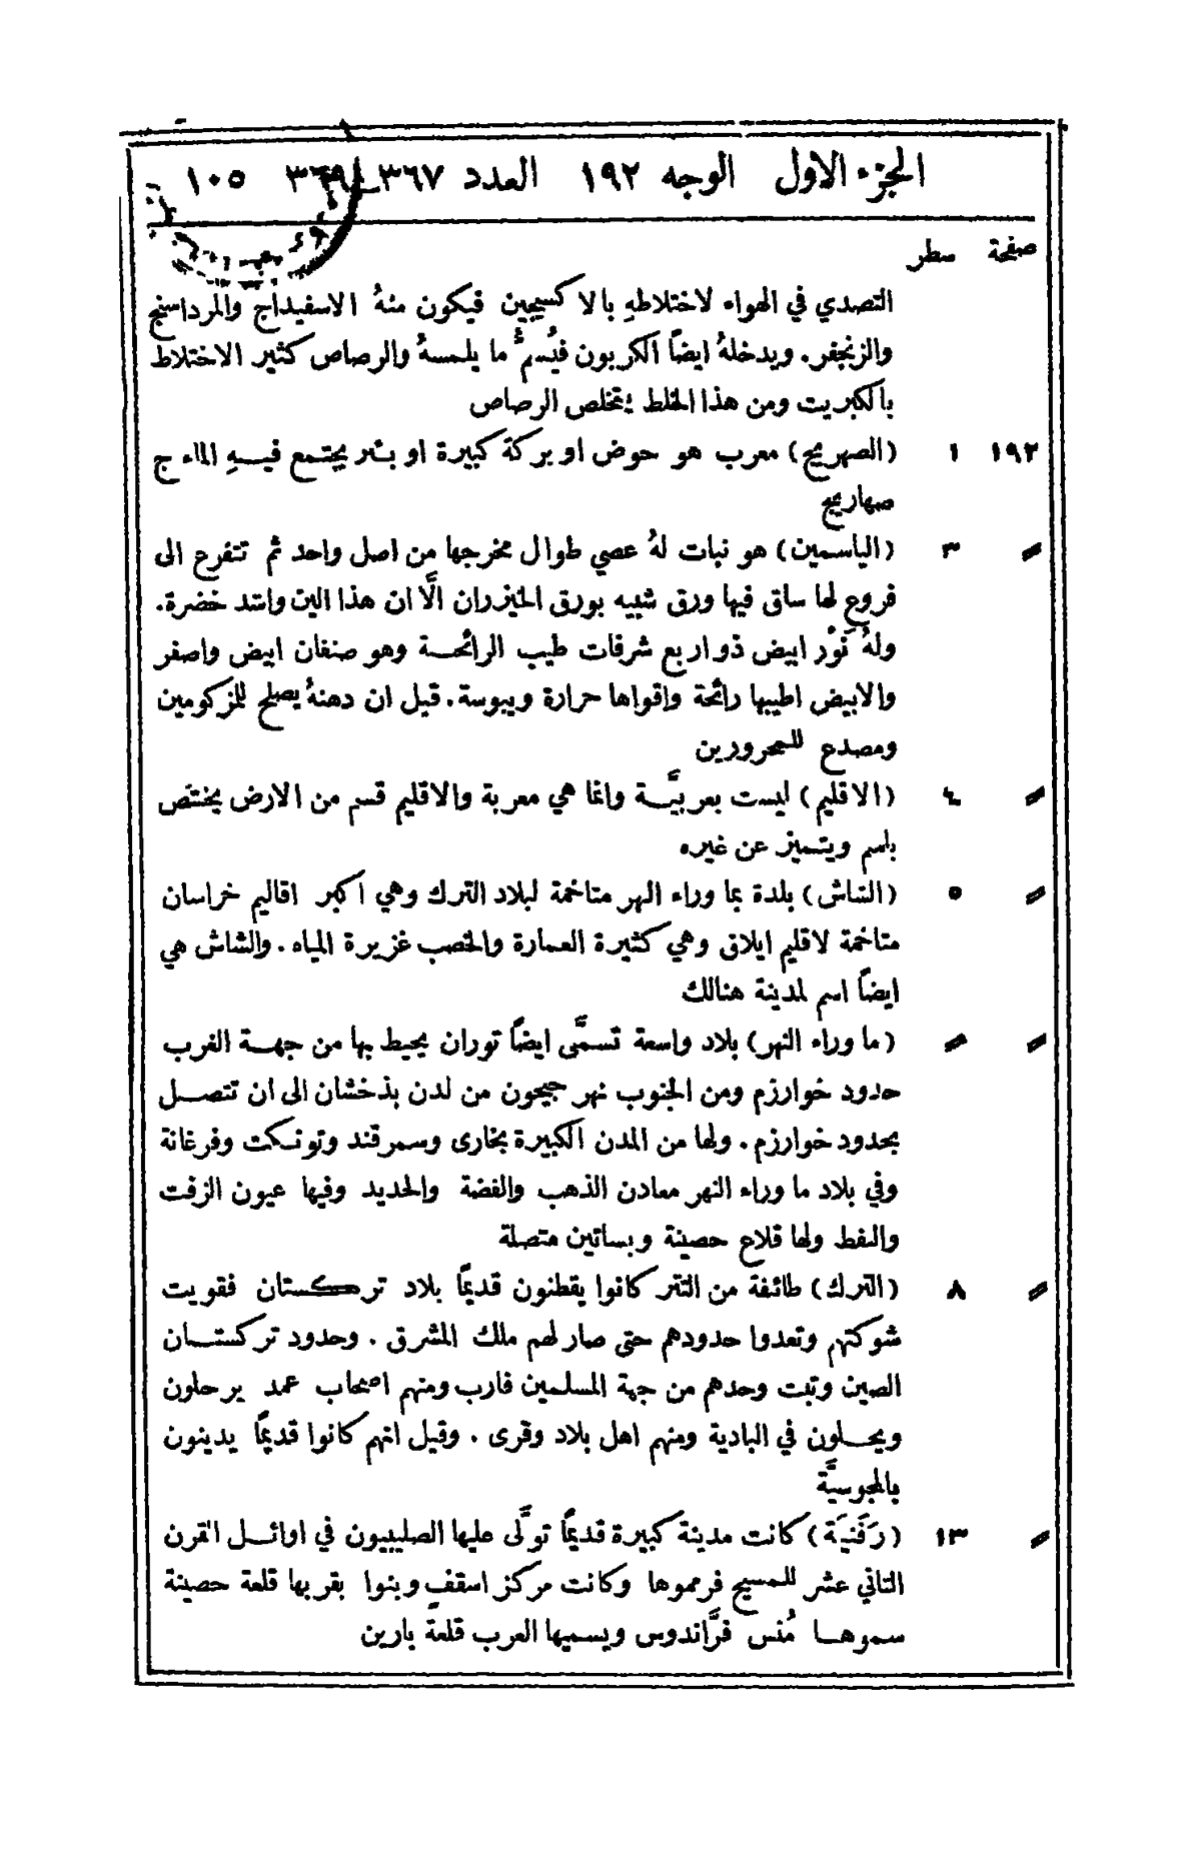 الجزء الاول الوجه ١٩٢ العدد ٣٦٧_٣٦٩ ١٠٥
صفحة سطر
التصدي في الهواء لاختلاطهِ بالاكسيجين فيكون منهُ الاسفيداج والمرداسنج
والزنجفر. ويدخلهُ ايضاً الكربون فيُسمُّ ما يلمسهُ والرصاص كثير الاختلاط
بالكبريت ومن هذا الخلط يتخلص الرصاص
١٩٢ ١ (الصهريج) معرب هو حوض او بركة كبيرة او بئر يجتمع فيهِ الماء ج
صهاريج
〃 ٣ (الياسمين) هو نبات لهُ عصي طوال مخرجها من اصل واحد ثم تتفرع الى
فروع لها ساق فيها ورق شبيه بورق الخيزران الَّا ان هذا الين واشد خضرة.
ولهُ نَوْر ابيض ذو اربع شرفات طيب الرائحة وهو صنفان ابيض واصفر
والابيض اطيبها رائحة واقواها حرارة ويبوسة. قيل ان دهنهُ يصلح للمزكومين
ومصدع للمحرورين
〃 ٤ (الاقليم) ليست بعربيَّة وانما هي معربة والاقليم قسم من الارض يختص
باسم ويتميز عن غيره
〃 ٥ (الشاش) بلدة بما وراء النهر متاخمة لبلاد الترك وهي اكبر اقاليم خراسان
متاخمة لاقليم ايلاق وهي كثيرة العمارة والخصب غزيرة المياه. والشاش هي
ايضاً اسم لمدينة هنالك
〃 〃 (ما وراء النهر) بلاد واسعة تسمَّى ايضاً توران يحيط بها من جهة الغرب
حدود خوارزم ومن الجنوب نهر جيحون من لدن بذخشان الى ان تتصل
بحدود خوارزم. ولها من المدن الكبيرة بخارى وسمرقند وتونكت وفرغانة
وفي بلاد ما وراء النهر معادن الذهب والفضة والحديد وفيها عيون الزفت
والنفط ولها قلاع حصينة وبساتين متصلة
〃 ٨ (الترك) طائفة من التتر كانوا يقطنون قديماً بلاد تركستان فقويت
شوكتهم وتعدوا حدودهم حتى صار لهم ملك المشرق. وحدود تركستان
الصين وتبت وحدهم من جهة المسلمين فارب ومنهم اصحاب عمد يرحلون
ويحلون في البادية ومنهم اهل بلاد وقرى. وقيل انهم كانوا قديماً يدينون
بالمجوسيَّة
〃 ١٣ (رَفَنيَة) كانت مدينة كبيرة قديماً تولَّى عليها الصليبيون في اوائل القرن
الثاني عشر للمسيح فرمموها وكانت مركز اسقفٍ وبنوا بقربها قلعة حصينة
سموها مُنس فرَّاندوس ويسميها العرب قلعة بارين